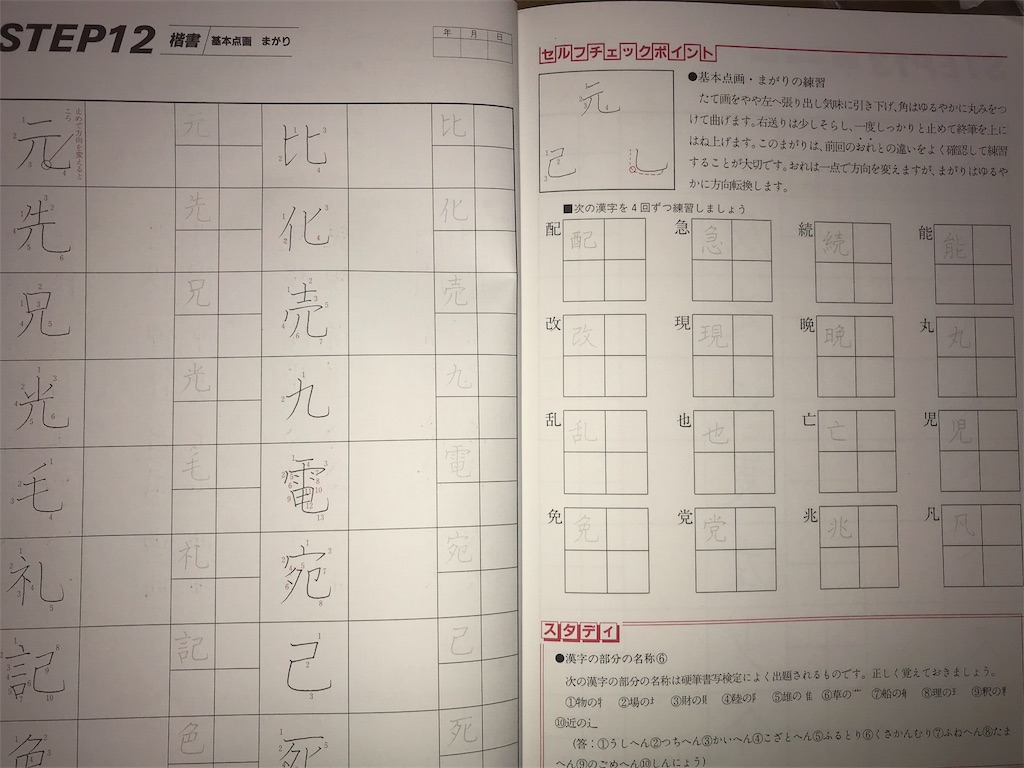 STEP12 楷書 基本点画 まがり
年 月 日
元 止めて方向を変えるところ 元 比 比
先 先 化 化
兄 兄 売 売
光 光 九 九
毛 毛 電 電
礼 礼 宛 宛
記 記 己 己
色 色 死 死
セルフチェックポイント
元
●基本点画・まがりの練習
たて画をやや左へ張り出し気味に引き下げ、角はゆるやかに丸みをつ
けて曲げます。右送りは少しそらし、一度しっかりと止めて終筆を上に
はね上げます。このまがりは、前回のおれとの違いをよく確認して練習
することが大切です。おれは一点で方向を変えますが、まがりはゆるや
かに方向転換します。
■次の漢字を4回ずつ練習しましょう
配 配 急 急 続 続 能 能
改 改 現 現 晩 晩 丸 丸
乱 乱 也 也 亡 亡 児 児
免 免 党 党 兆 兆 凡 凡
スタディ
●漢字の部分の名称⑥
次の漢字の部分の名称は硬筆書写検定によく出題されるものです。正しく覚えておきましょう。
①物の牜 ②場の土 ③財の貝 ④陸の阝 ⑤雄の隹 ⑥草の艹 ⑦船の舟 ⑧理の王 ⑨釈の釆
⑩近の辶
(答：①うしへん②つちへん③かいへん④こざとへん⑤ふるとり⑥くさかんむり⑦ふねへん⑧たま
へん⑨のごめへん⑩しんにょう)